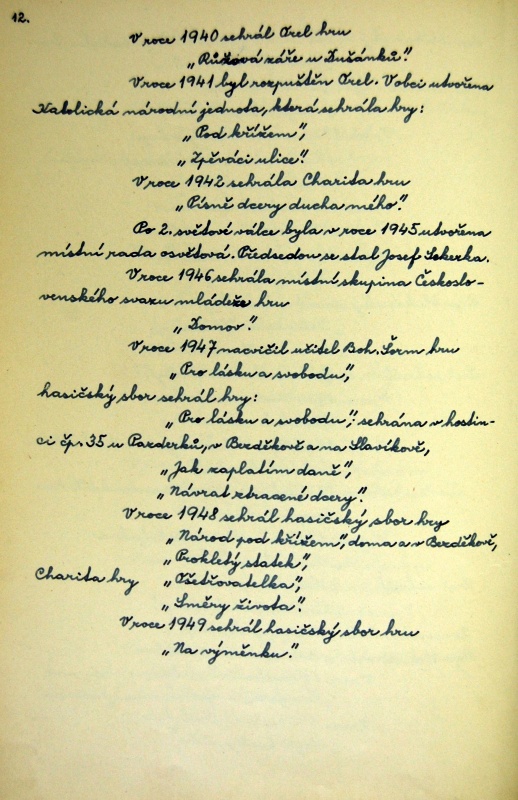 12.
V roce 1940 sehrál Orel hru
„Růžová záře u Dušánků".
V roce 1941 byl rozpuštěn Orel. V obci utvořena
Katolická národní jednota, která sehrála hry:
„Pod křížem",
„Zpěváci ulice".
V roce 1942 sehrála Charita hru
„Písně dcery ducha mého".
Po 2. světové válce byla v roce 1945 utvořena
místní rada osvětová. Předsedou se stal Josef Sekerka.
V roce 1946 sehrála místní skupina Českoslo-
venského svazu mládeže hru
„Domov".
V roce 1947 nacvičil učitel Boh. Šorm hru
„Pro lásku a svobodu",
hasičský sbor sehrál hry:
„Pro lásku a svobodu": sehrána v hostin-
ci čp. 35 u Pazderků, v Bezděkově a na Slavíkově,
„Jak zaplatím daně",
„Návrat ztracené dcery".
V roce 1948 sehrál hasičský sbor hry
„Národ pod křížem", doma a v Bezděkově,
„Prokletý statek",
Charita hry „Ošetřovatelka",
„Směry života".
V roce 1949 sehrál hasičský sbor hru
„Na výměnku".